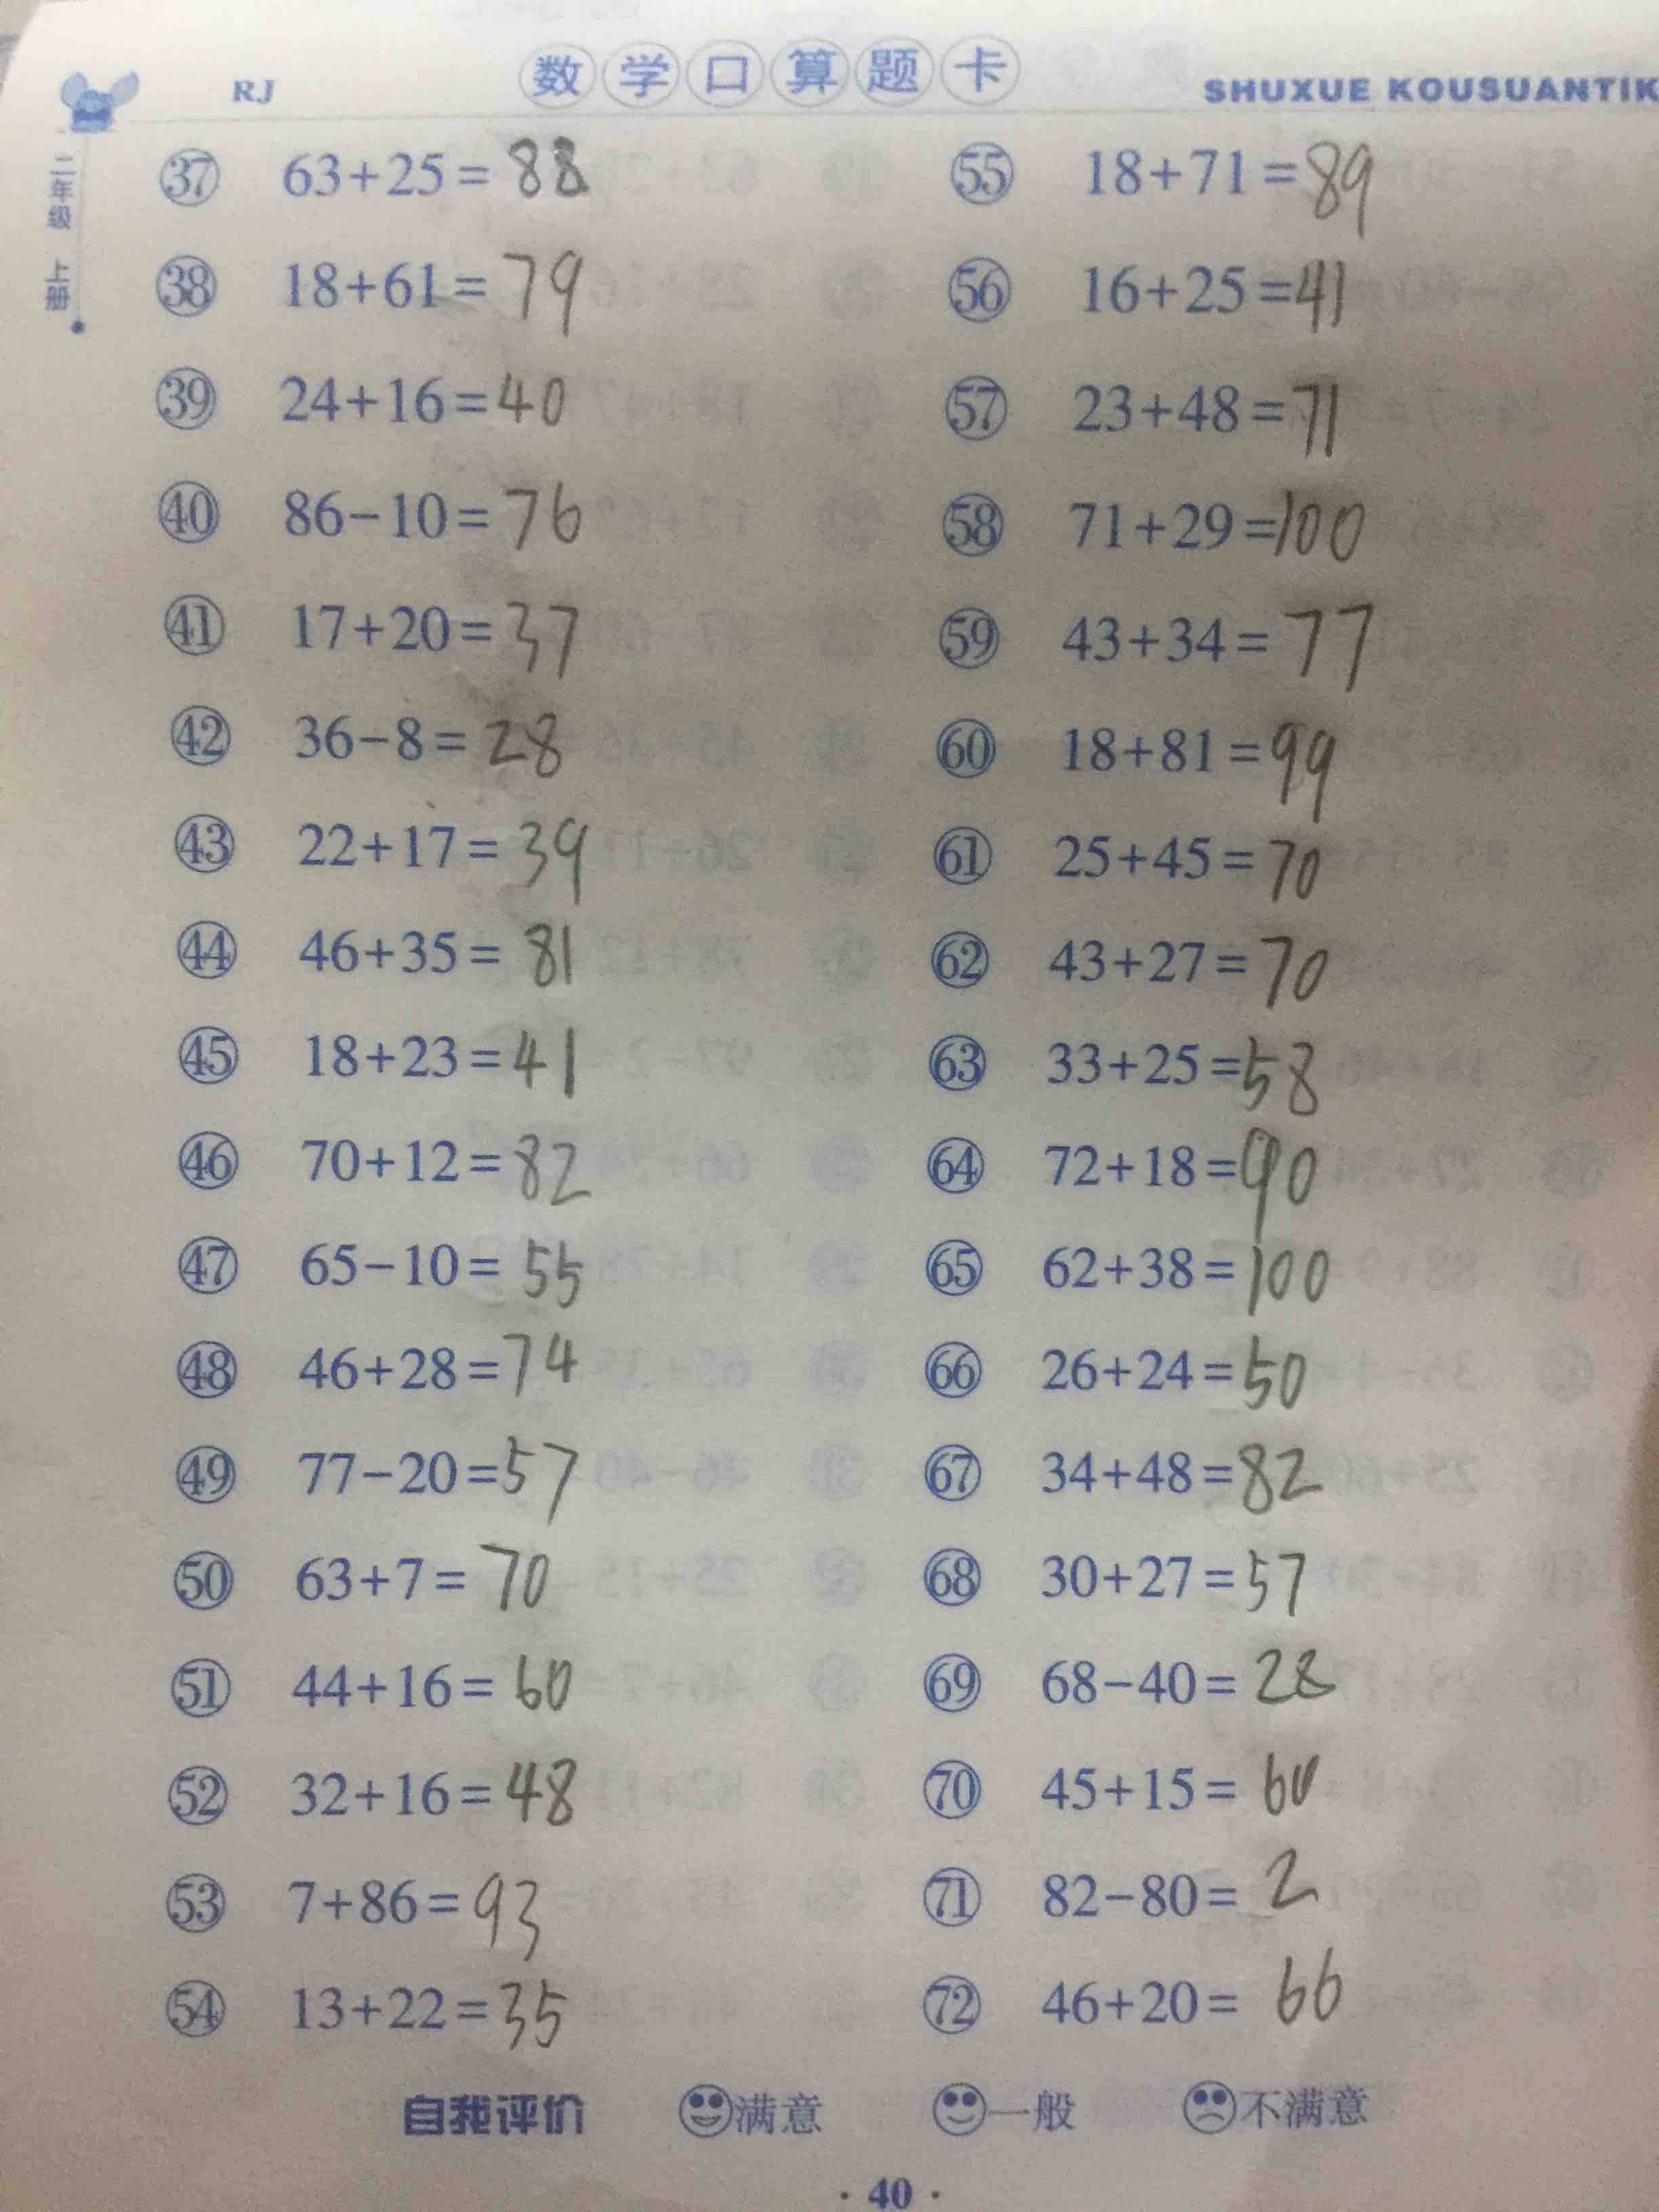 RJ 数学口算题卡 SHUXUE KOUSUANTIK
二年级 上册
㊲ 63+25=88
㊳ 18+61=79
㊴ 24+16=40
㊵ 86-10=76
㊶ 17+20=37
㊷ 36-8=28
㊸ 22+17=39
㊹ 46+35=81
㊺ 18+23=41
㊻ 70+12=82
㊼ 65-10=55
㊽ 46+28=74
㊾ 77-20=57
㊿ 63+7=70
51 44+16=60
52 32+16=48
53 7+86=93
54 13+22=35
55 18+71=89
56 16+25=41
57 23+48=71
58 71+29=100
59 43+34=77
60 18+81=99
61 25+45=70
62 43+27=70
63 33+25=58
64 72+18=90
65 62+38=100
66 26+24=50
67 34+48=82
68 30+27=57
69 68-40=28
70 45+15=60
71 82-80=2
72 46+20=66
自我评价 满意 一般 不满意
·40·